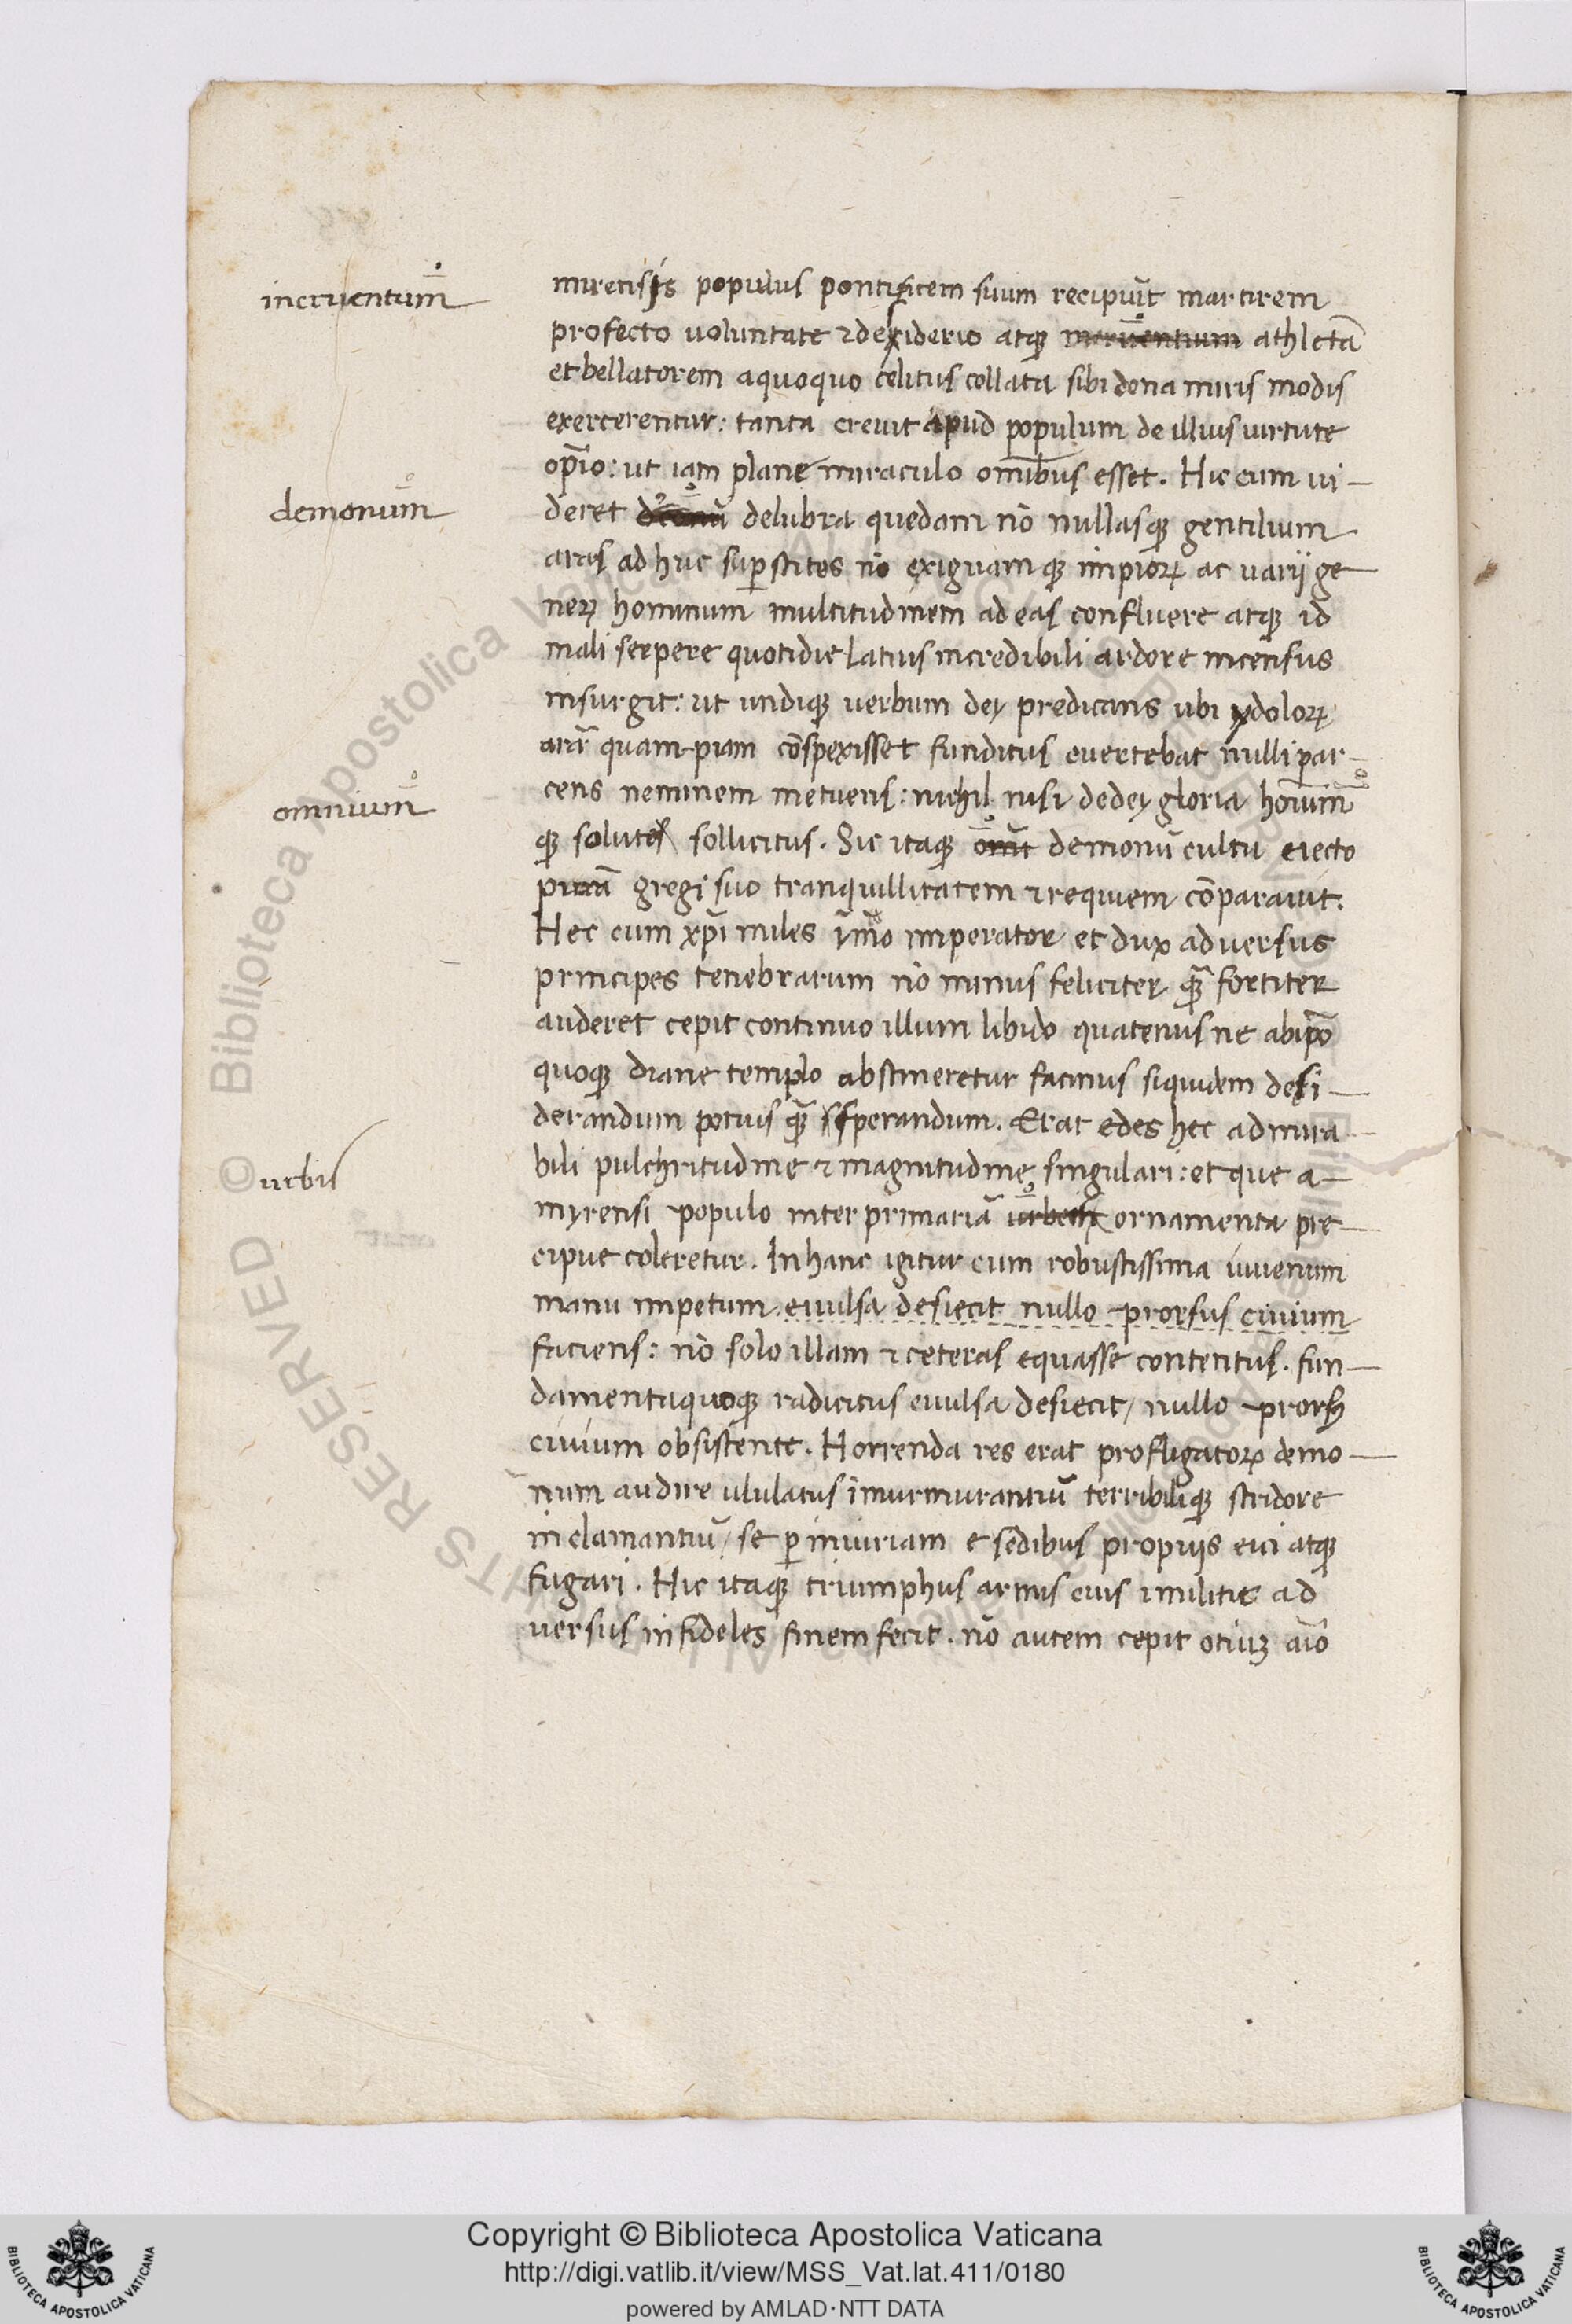 incruentum̄
demonum̄
omnium̄
urbis
mirensis populus pontificem suum recipuit martirem
profecto uoluntate ⁊ desiderio atqꝫ incruentum athletā
et bellatorem a quo quo celitus collata sibi dona miris modis
exercerentur: tanta creuit apud populum de illius uirtute
opīo: ut iam plane miraculo omībus esset. Hic cum ui-
deret delubra quedam nō nullasqꝫ gentilium
aras ad huc suꝑstites nō exiguamqꝫ impioꝝ ac uarij ge-
neꝝ hominum multitudinem ad eas confluere atqꝫ id
mali serpere quotidie latius incredibili ardore incensus
insurgit: ut undiqꝫ uerbum dey predicans ubi ydoloꝝ
arā quampiam cōspexisset funditus euertebat nulli par-
cens neminem metuens: nichil nisi de dey gloria hoīum̄
qꝫ salutes sollicitus. Sic itaqꝫ demonū cultu eiecto
gregi suo tranquillitatem ⁊ requiem cōparauit.
Hec cum xp̄i miles ymō imperator et dux aduersus
principes tenebrarum nō minus feliciter qꝫ̄ fortiter
auderet cepit continuo illum libido quatenus ne ab ip̄o
quoqꝫ diane templo abstineretur facinus siquidem desi-
derandum potius qꝫ̄ sperandum. Erat edes hec admira-
bili pulchritudine ⁊ magnitudine singulari: et que a-
myrensi populo inter primariā ornamenta pre-
cipue coleretur. In hanc igitur cum robustissima iuuenum
manu impetum euulsa desiecit nullo prorsus ciuium
faciens: nō solo illam ⁊ ceteras equasse contentus. fun-
damentaquoqꝫ radicitus euulsa desiecit/ nullo prorsꝰ
ciuium obsistente. Horrenda res erat profligatoꝝ demo-
num audire ululatus īmurmurantiū terribiliqꝫ stridore
inclamantiū/ se ꝑ iniuriam e sedibus proprijs eici atqꝫ
fugari. Hic itaqꝫ triumphus armis eius ⁊ militie ad
uersus infideles finem fecit. nō autem cepit otiuꝫ aīo
© Biblioteca Apostolica Vaticana
Copyright © Biblioteca Apostolica Vaticana
http://digi.vatlib.it/view/MSS_Vat.lat.411/0180
powered by AMLAD·NTT DATA
BIBLIOTECA APOSTOLICA VATICANA
BIBLIOTECA APOSTOLICA VATICANA